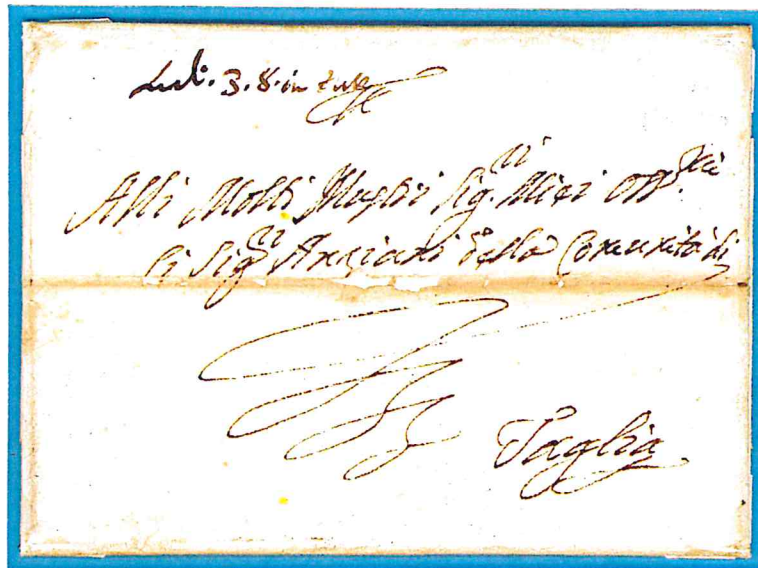 3. 8. in
Alli Molti Illustri Sig.ri Miei Oss.mi
li Sig.ri Anziani della Comunità di
Taglia